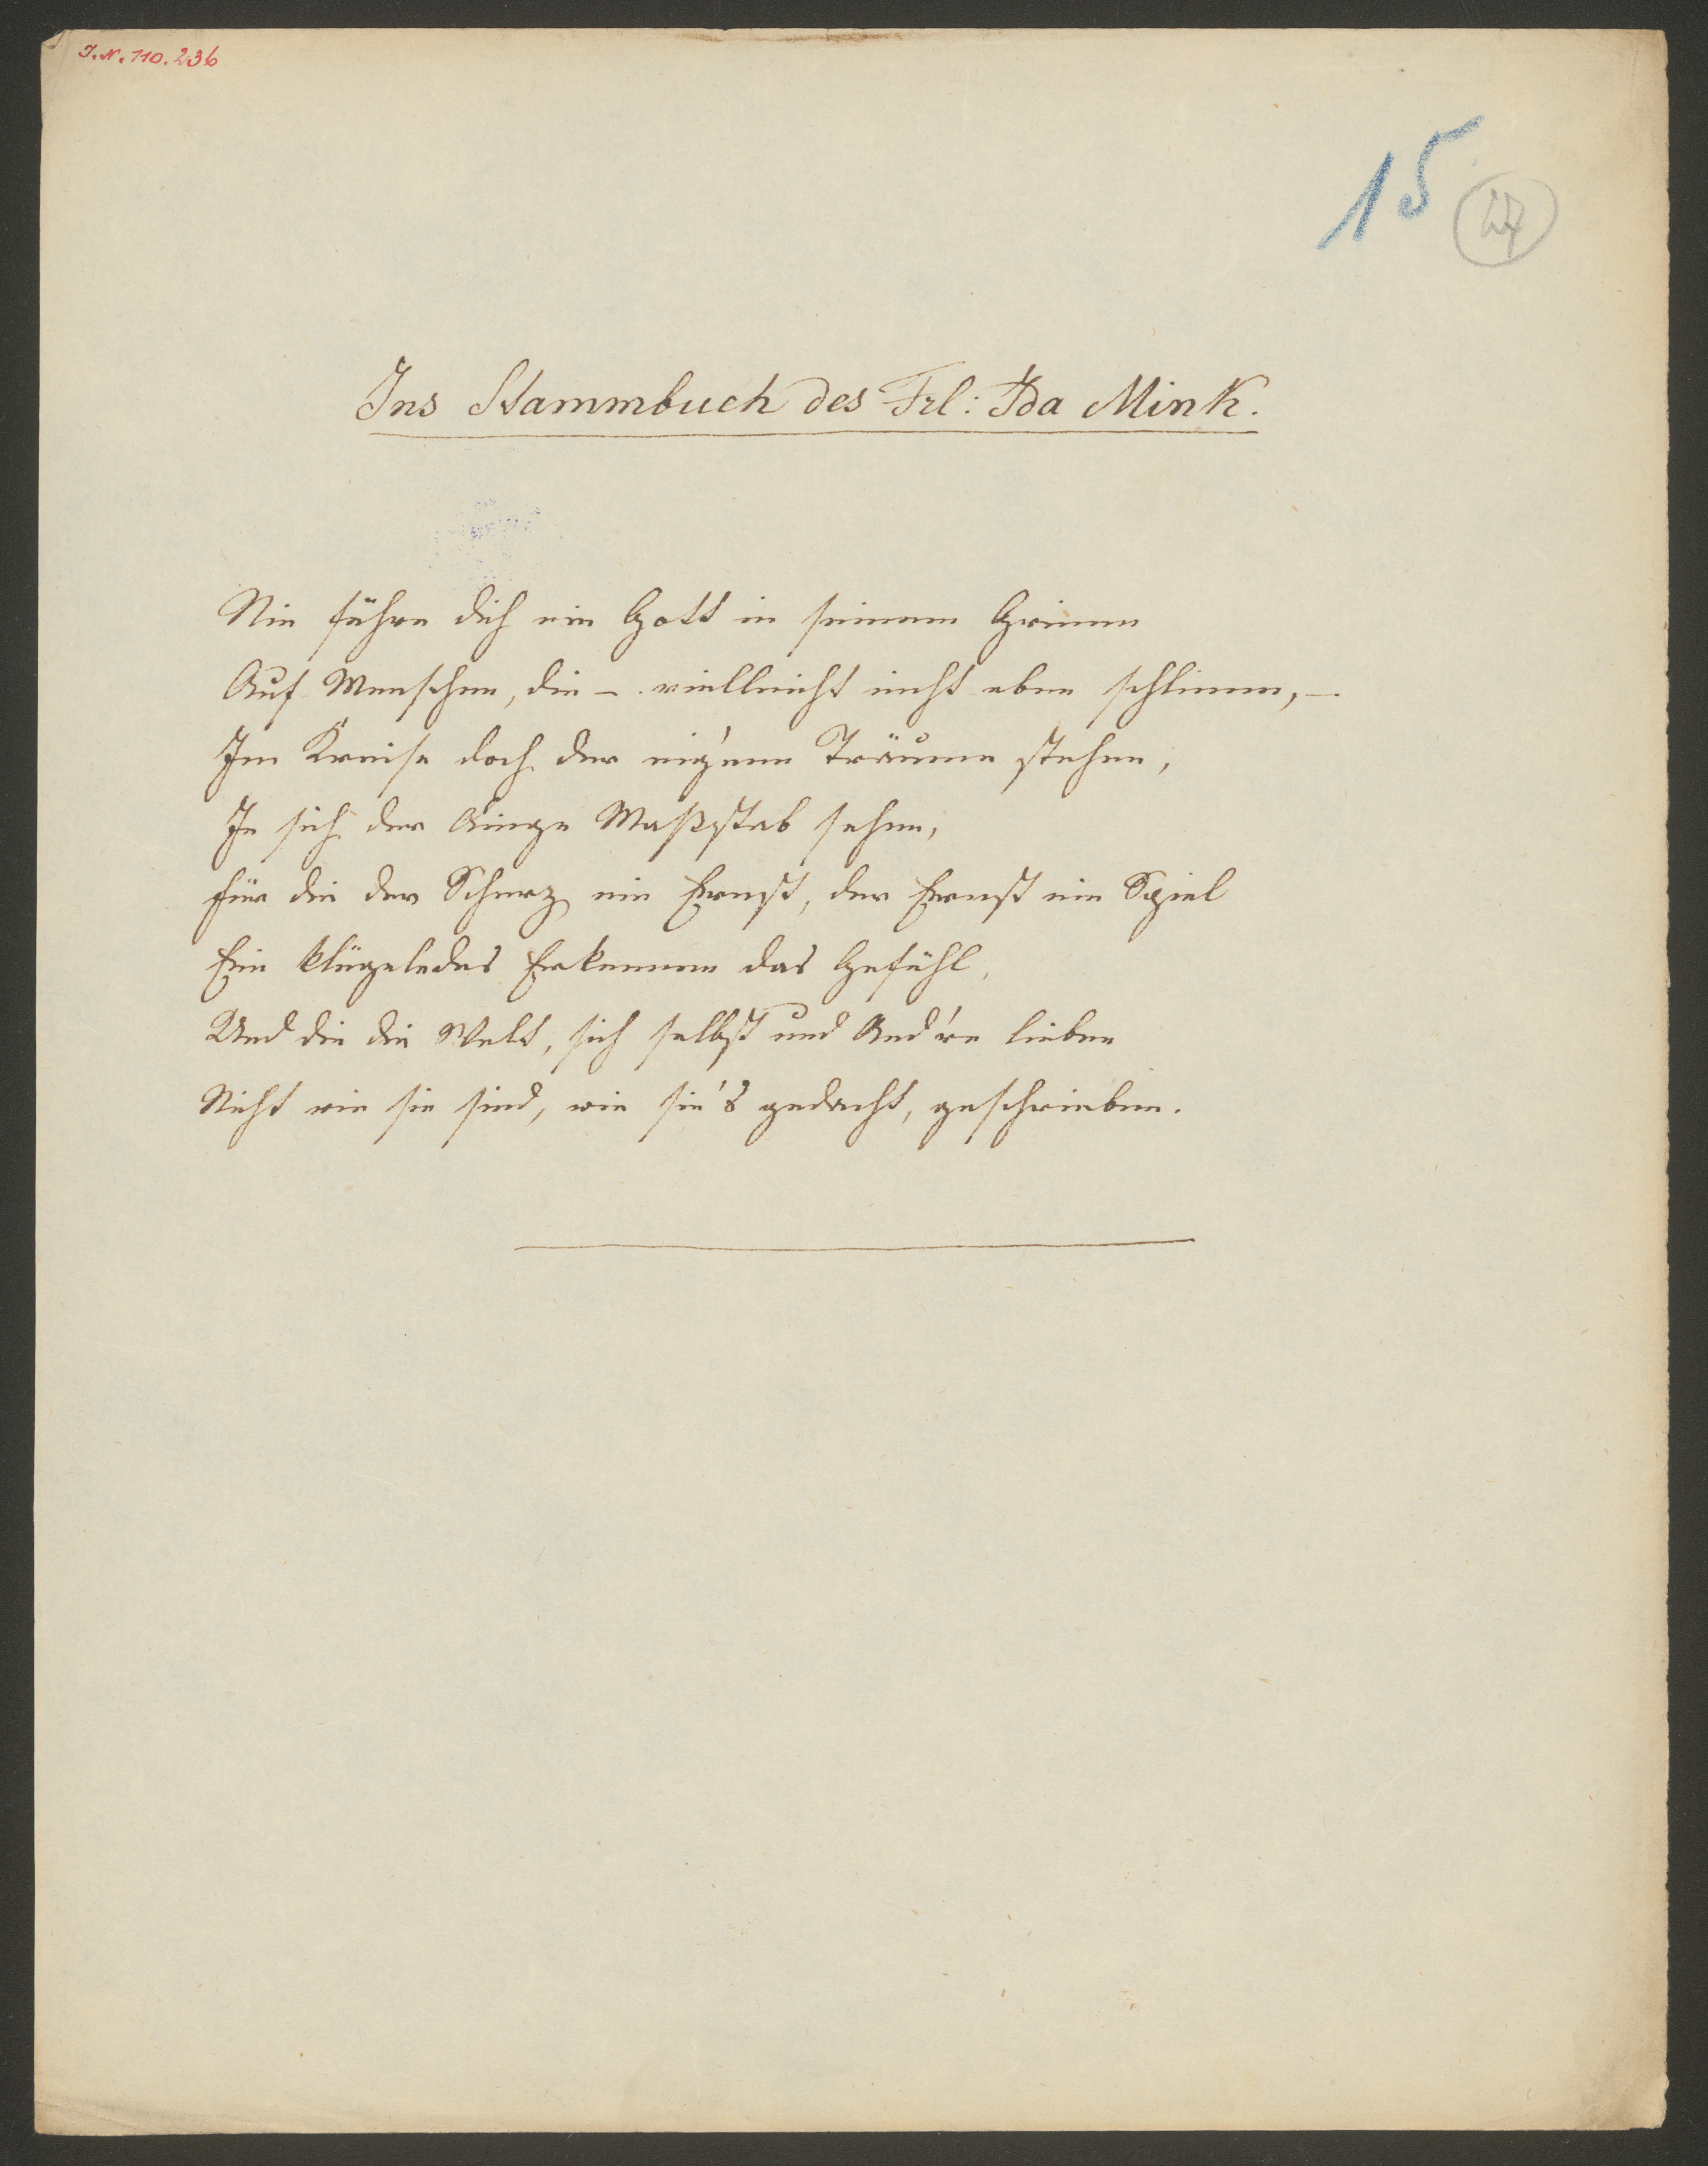 J.N. 110.236
15
Ins Stammbuch des Frl: Ida Mink.
Nie führe dich ein Gott in seinem Grimm
Auf Menschen, die – vielleicht nicht eben schlimm, –
Im Kreise doch der eig'nen Träume stehen,
In sich der Maßstab sehen,
Für die der Scherz ein Ernst, der Ernst ein Spiel
Ein klügeledes Erkennen das Gefühl,
Und die die Welt, sich selbst und And're lieben
Nicht wie sie sind, wie sie's gedacht, geschrieben.